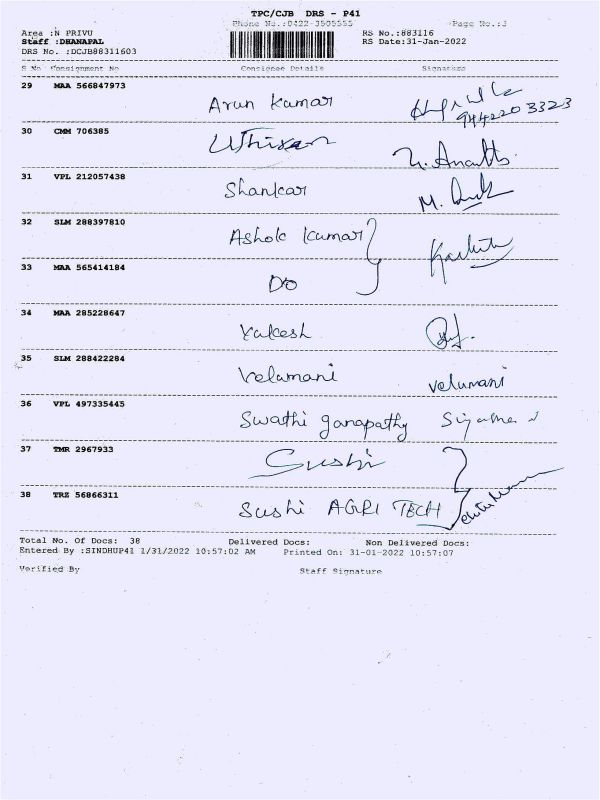 TPC/CJB DRS - P41
Phone No.:0422-3505555 Page No.:3
Area :N PRIVU RS No.:883116
Staff :DHANAPAL RS Date:31-Jan-2022
DRS No. :DCJB88311603
S No Consignment No Consignee Details Signature
29 MAA 566847973 Arun Kumar
9442203323
30 CMM 706385
31 VPL 212057438 Shankar
32 SLM 288397810 Ashok Kumar
33 MAA 565414184 Do
34 MAA 285228647
35 SLM 288422284 Velamani velumani
36 VPL 497335445 Swathi ganapathy
37 TMR 2967933 Sushi
38 TRZ 56866311 Sushi AGRI TECH
Total No. Of Docs: 38 Delivered Docs: Non Delivered Docs:
Entered By :SINDHUP41 1/31/2022 10:57:02 AM Printed On: 31-01-2022 10:57:07
Verified By Staff Signature